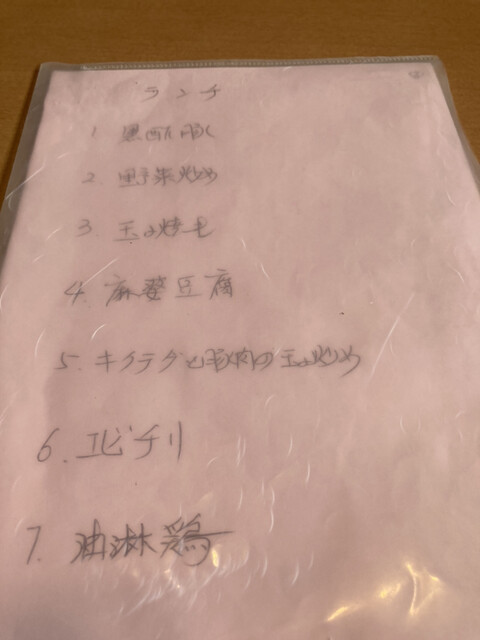 ランチ
1 黒酢豚
2 野菜炒め
3 玉子焼き
4. 麻婆豆腐
5. キクラゲと豚肉の玉子炒め
6. エビチリ
7. 油淋鶏